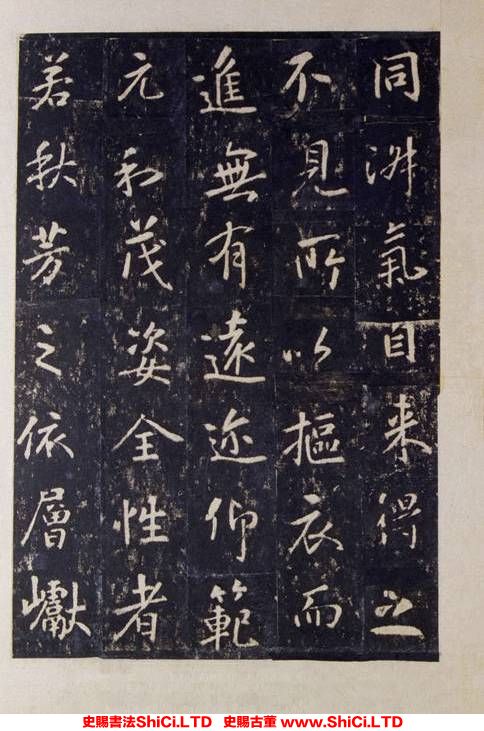 同淋氣自来得之
不見所以摳衣而
進無有遠迩仰範
元和茂姿全性者
若秋芳之依層巘
史賜書法ShiCi.LTD 史賜古董 www.ShiCi.LTD